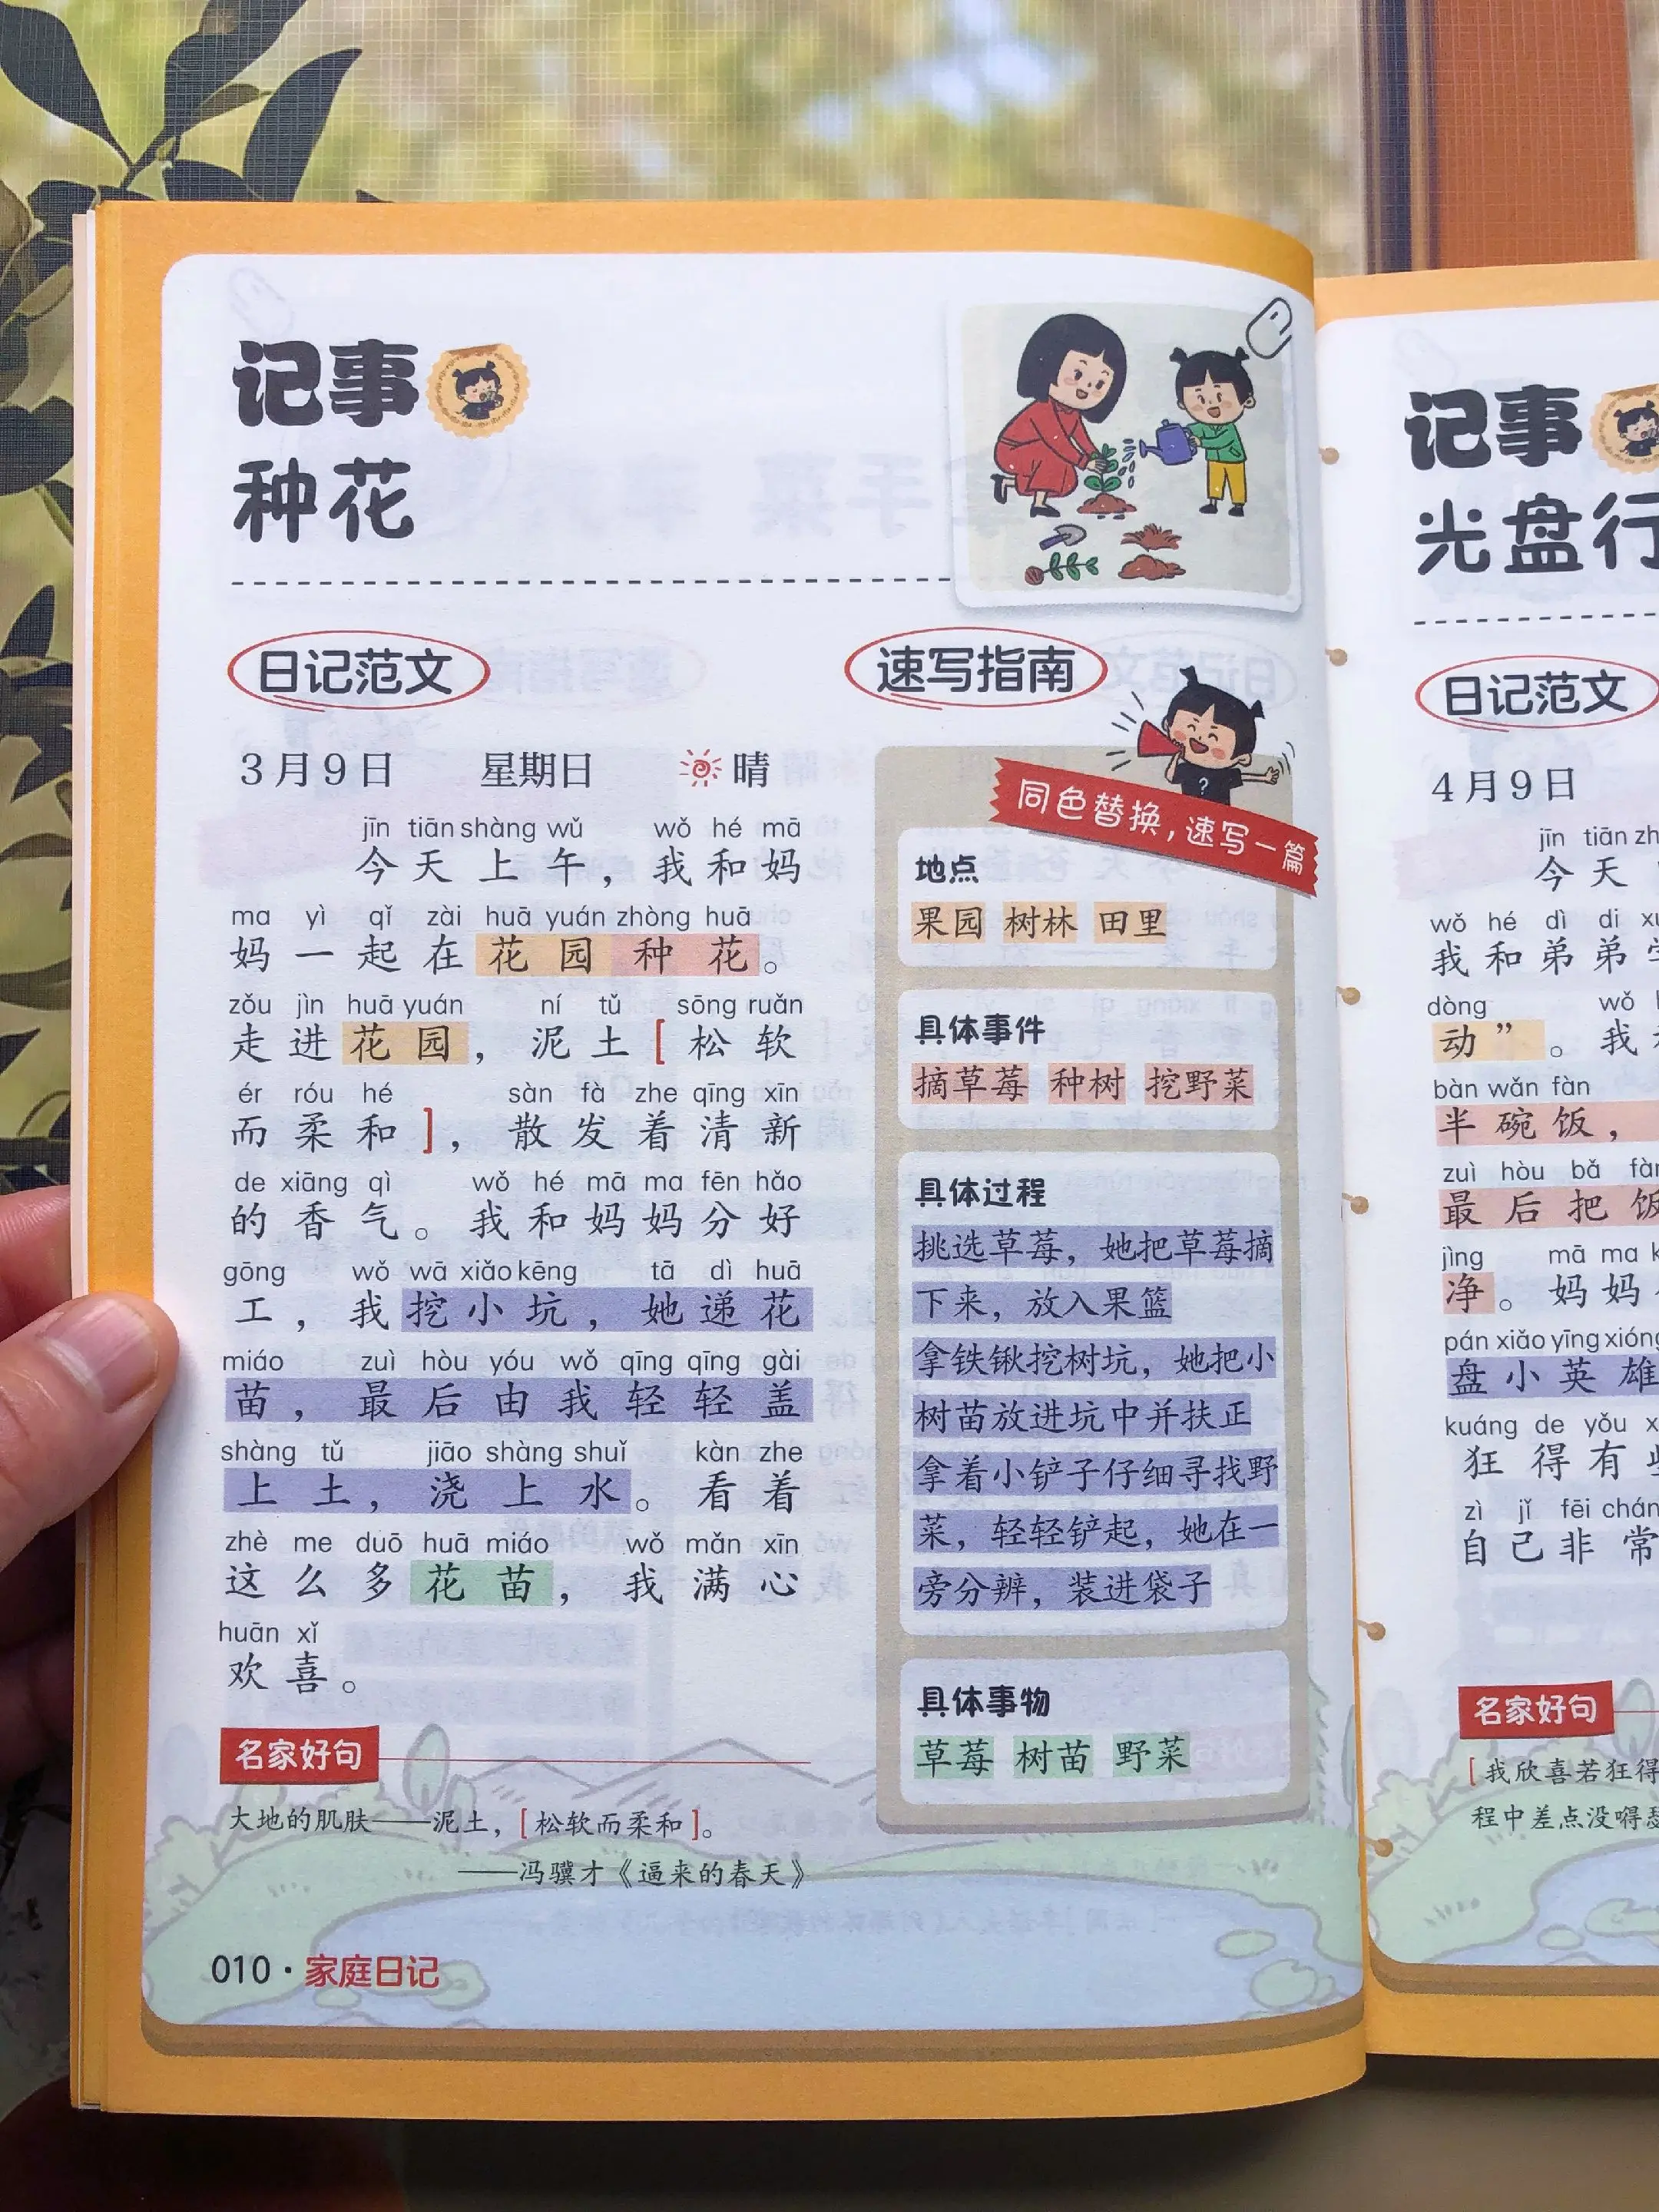 记事
种花
日记范文
3月9日 星期日 晴
jīn tiān shàng wǔ wǒ hé mā
今天上午，我和妈
ma yì qǐ zài huā yuán zhòng huā
妈一起在花园种花。
zǒu jìn huā yuán ní tǔ sōng ruǎn
走进花园，泥土[松软
ér róu hé sàn fà zhe qīng xīn
而柔和]，散发着清新
de xiāng qì wǒ hé mā ma fēn hǎo
的香气。我和妈妈分好
gōng wǒ wā xiǎo kēng tā dì huā
工，我挖小坑，她递花
miáo zuì hòu yóu wǒ qīng qīng gài
苗，最后由我轻轻盖
shàng tǔ jiāo shàng shuǐ kàn zhe
上土，浇上水。看着
zhè me duō huā miáo wǒ mǎn xīn
这么多花苗，我满心
huān xǐ
欢喜。
名家好句
大地的肌肤——泥土，[松软而柔和]。
——冯骥才《逼来的春天》
010·家庭日记
速写指南
同色替换，速写一篇
地点
果园 树林 田里
具体事件
摘草莓 种树 挖野菜
具体过程
挑选草莓，她把草莓摘
下来，放入果篮
拿铁锹挖树坑，她把小
树苗放进坑中并扶正
拿着小铲子仔细寻找野
菜，轻轻铲起，她在一
旁分辨，装进袋子
具体事物
草莓 树苗 野菜
记事
光盘行
日记范文
4月9日
jīn tiān zh
今天
wǒ hé dì di
我和弟弟
dòng wǒ
动”。我
bàn wǎn fàn
半碗饭，
zuì hòu bǎ fàn
最后把饭
jìng mā ma
净。妈妈
pán xiǎo yīng xióng
盘小英雄
kuáng de yǒu
狂得有
zì jǐ fēi chán
自己非常
名家好句
[我欣喜若狂得
程中差点没嘚瑟